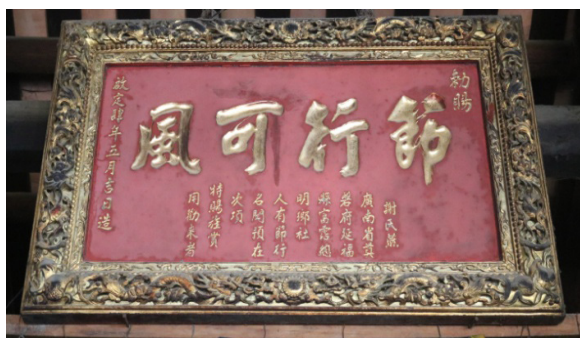 勅賜
節行可風
謝氏
廣南省奠
磐府延福
縣富霑
明鄉社
人有節行
名聞預在
次項
特賜旌賞
用勸來者
啟定肆年五月吉日造